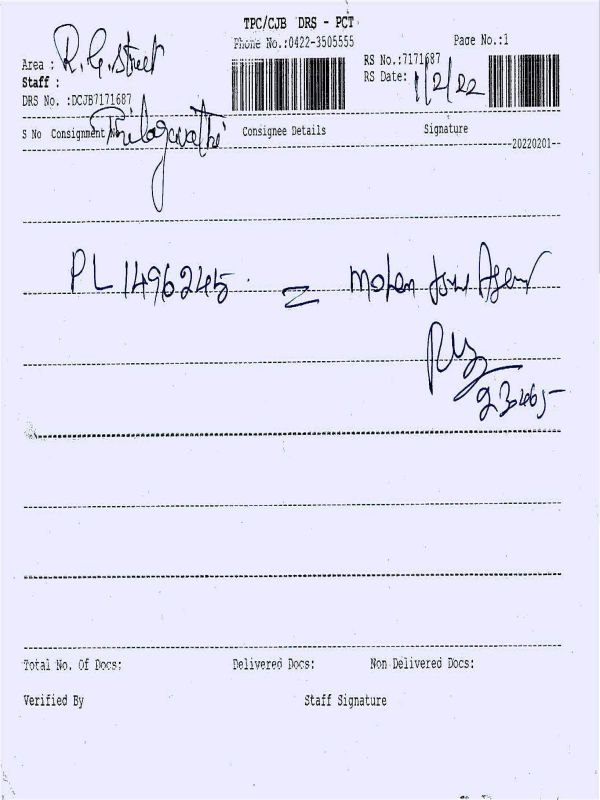 TPC/CJB DRS - PCT
Phone No.:0422-3505555
Page No.:1
Area : R. G. Street
RS No.:7171687
Staff :
RS Date: 1/2/22
DRS No. :DCJB7171687
Thilagavathi
S No Consignment No Consignee Details Signature
--20220201--
PL 14962245 = Mohan
Total No. Of Docs: Delivered Docs: Non Delivered Docs:
Verified By Staff Signature